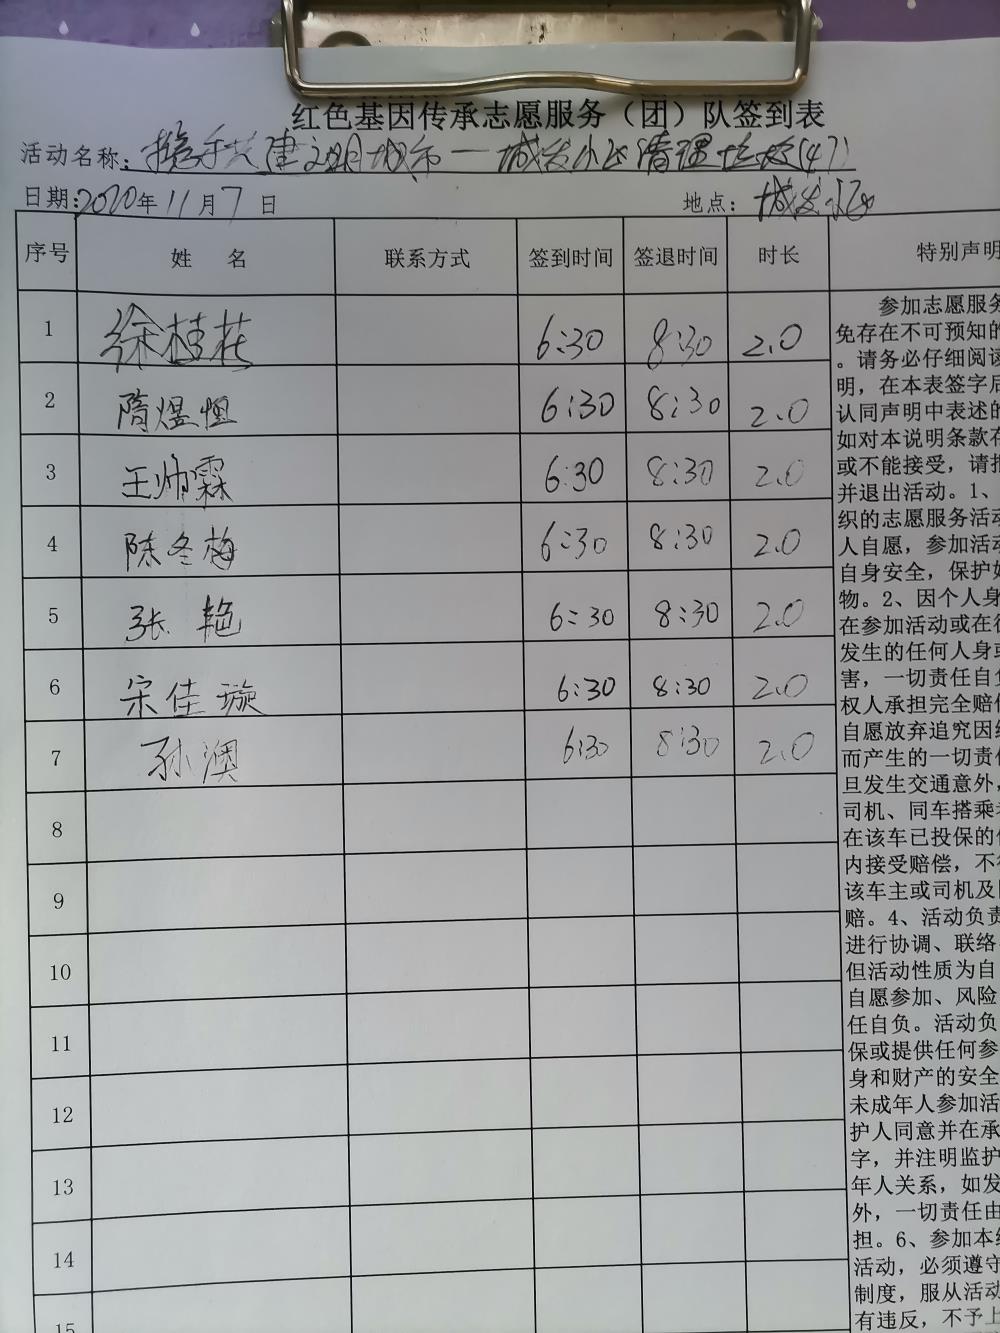 红色基因传承志愿服务（团）队签到表
活动名称：携手共建文明城市一城发小区清理垃圾(47)
日期：2020年11月7日 地点：城发小区
序号 姓 名 联系方式 签到时间 签退时间 时长 特别声明
1 徐桂花 6:30 8:30 2.0
2 隋煜恒 6:30 8:30 2.0
3 王帅霖 6:30 8:30 2.0
4 陈冬梅 6:30 8:30 2.0
5 张艳 6:30 8:30 2.0
6 宋佳璇 6:30 8:30 2.0
7 孙澳 6:30 8:30 2.0
8
9
10
11
12
13
14
15
参加志愿服务
免存在不可预知的
。请务必仔细阅读
明，在本表签字后
认同声明中表述的
如对本说明条款存
或不能接受，请拒
并退出活动。1、
织的志愿服务活动
人自愿，参加活动
自身安全，保护好
物。2、因个人身
在参加活动或在往
发生的任何人身或
害，一切责任自负
权人承担完全赔偿
自愿放弃追究因组
而产生的一切责任
旦发生交通意外，
司机、同车搭乘者
在该车已投保的
内接受赔偿，不得
该车主或司机及
赔。4、活动负责
进行协调、联络
但活动性质为自
自愿参加、风险
任自负。活动负
保或提供任何参
身和财产的安全
未成年人参加活
护人同意并在承
字，并注明监护
年人关系，如发
外，一切责任由
担。6、参加本组
活动，必须遵守
制度，服从活动
有违反，不予上